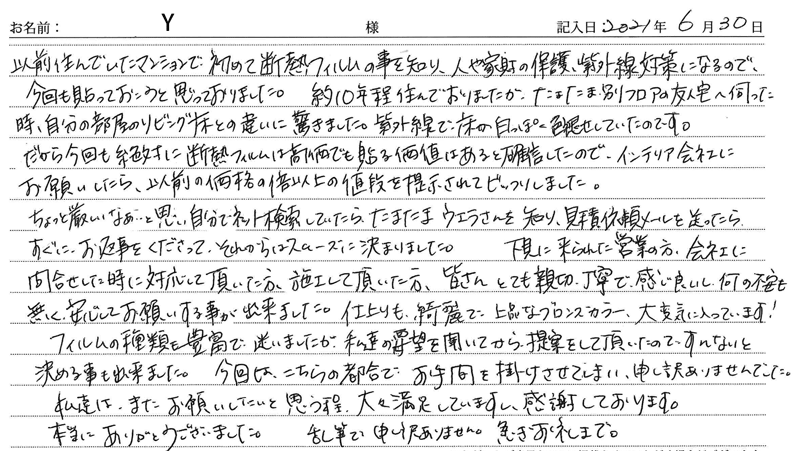 お名前： Y 様 記入日：2021年 6月 30日
以前住んでいたマンションで初めて断熱フィルムの事を知り、人や家財の保護、紫外線対策になるので、
今回も貼っておこうと思っておりました。 約10年程住んでおりましたが、たまたま別フロアの友人宅へ伺った
時、自分の部屋のリビング床との違いに驚きました。紫外線で床が白っぽく色褪せしていたのです。
だから今回も絶対に断熱フィルムは高価でも貼る価値はあると確信したので、インテリア会社に
お願いしたら、以前の価格の倍以上の値段を提示されてビックリしました。
ちょっと厳しいなぁ…と思い、自分でネット検索していたら、たまたまウエラさんを知り、見積依頼メールを送ったら
すぐに、お返事をくださって、それからはスムーズに決まりました。 下見に来られた営業の方、会社に
問合せした時に対応して頂いた方、施工して頂いた方、皆さんとても親切、丁寧で、感じ良いし、何の不安も
無く、安心してお願いする事が出来ました。仕上りも、綺麗で上品なブロンズカラー、大変気に入っています！
フィルムの種類も豊富で、迷いましたが、私達の要望を聞いてから、提案をして頂いたので、すんなりと
決める事も出来ました。 今回は、こちらの都合で、お手間を掛けさせてしまい、申し訳ありませんでした。
私達は、またお願いしたいと思う程、大々満足していますし、感謝しております。
本当にありがとうございました。 乱筆で申し訳ありません。急ぎお礼まで。